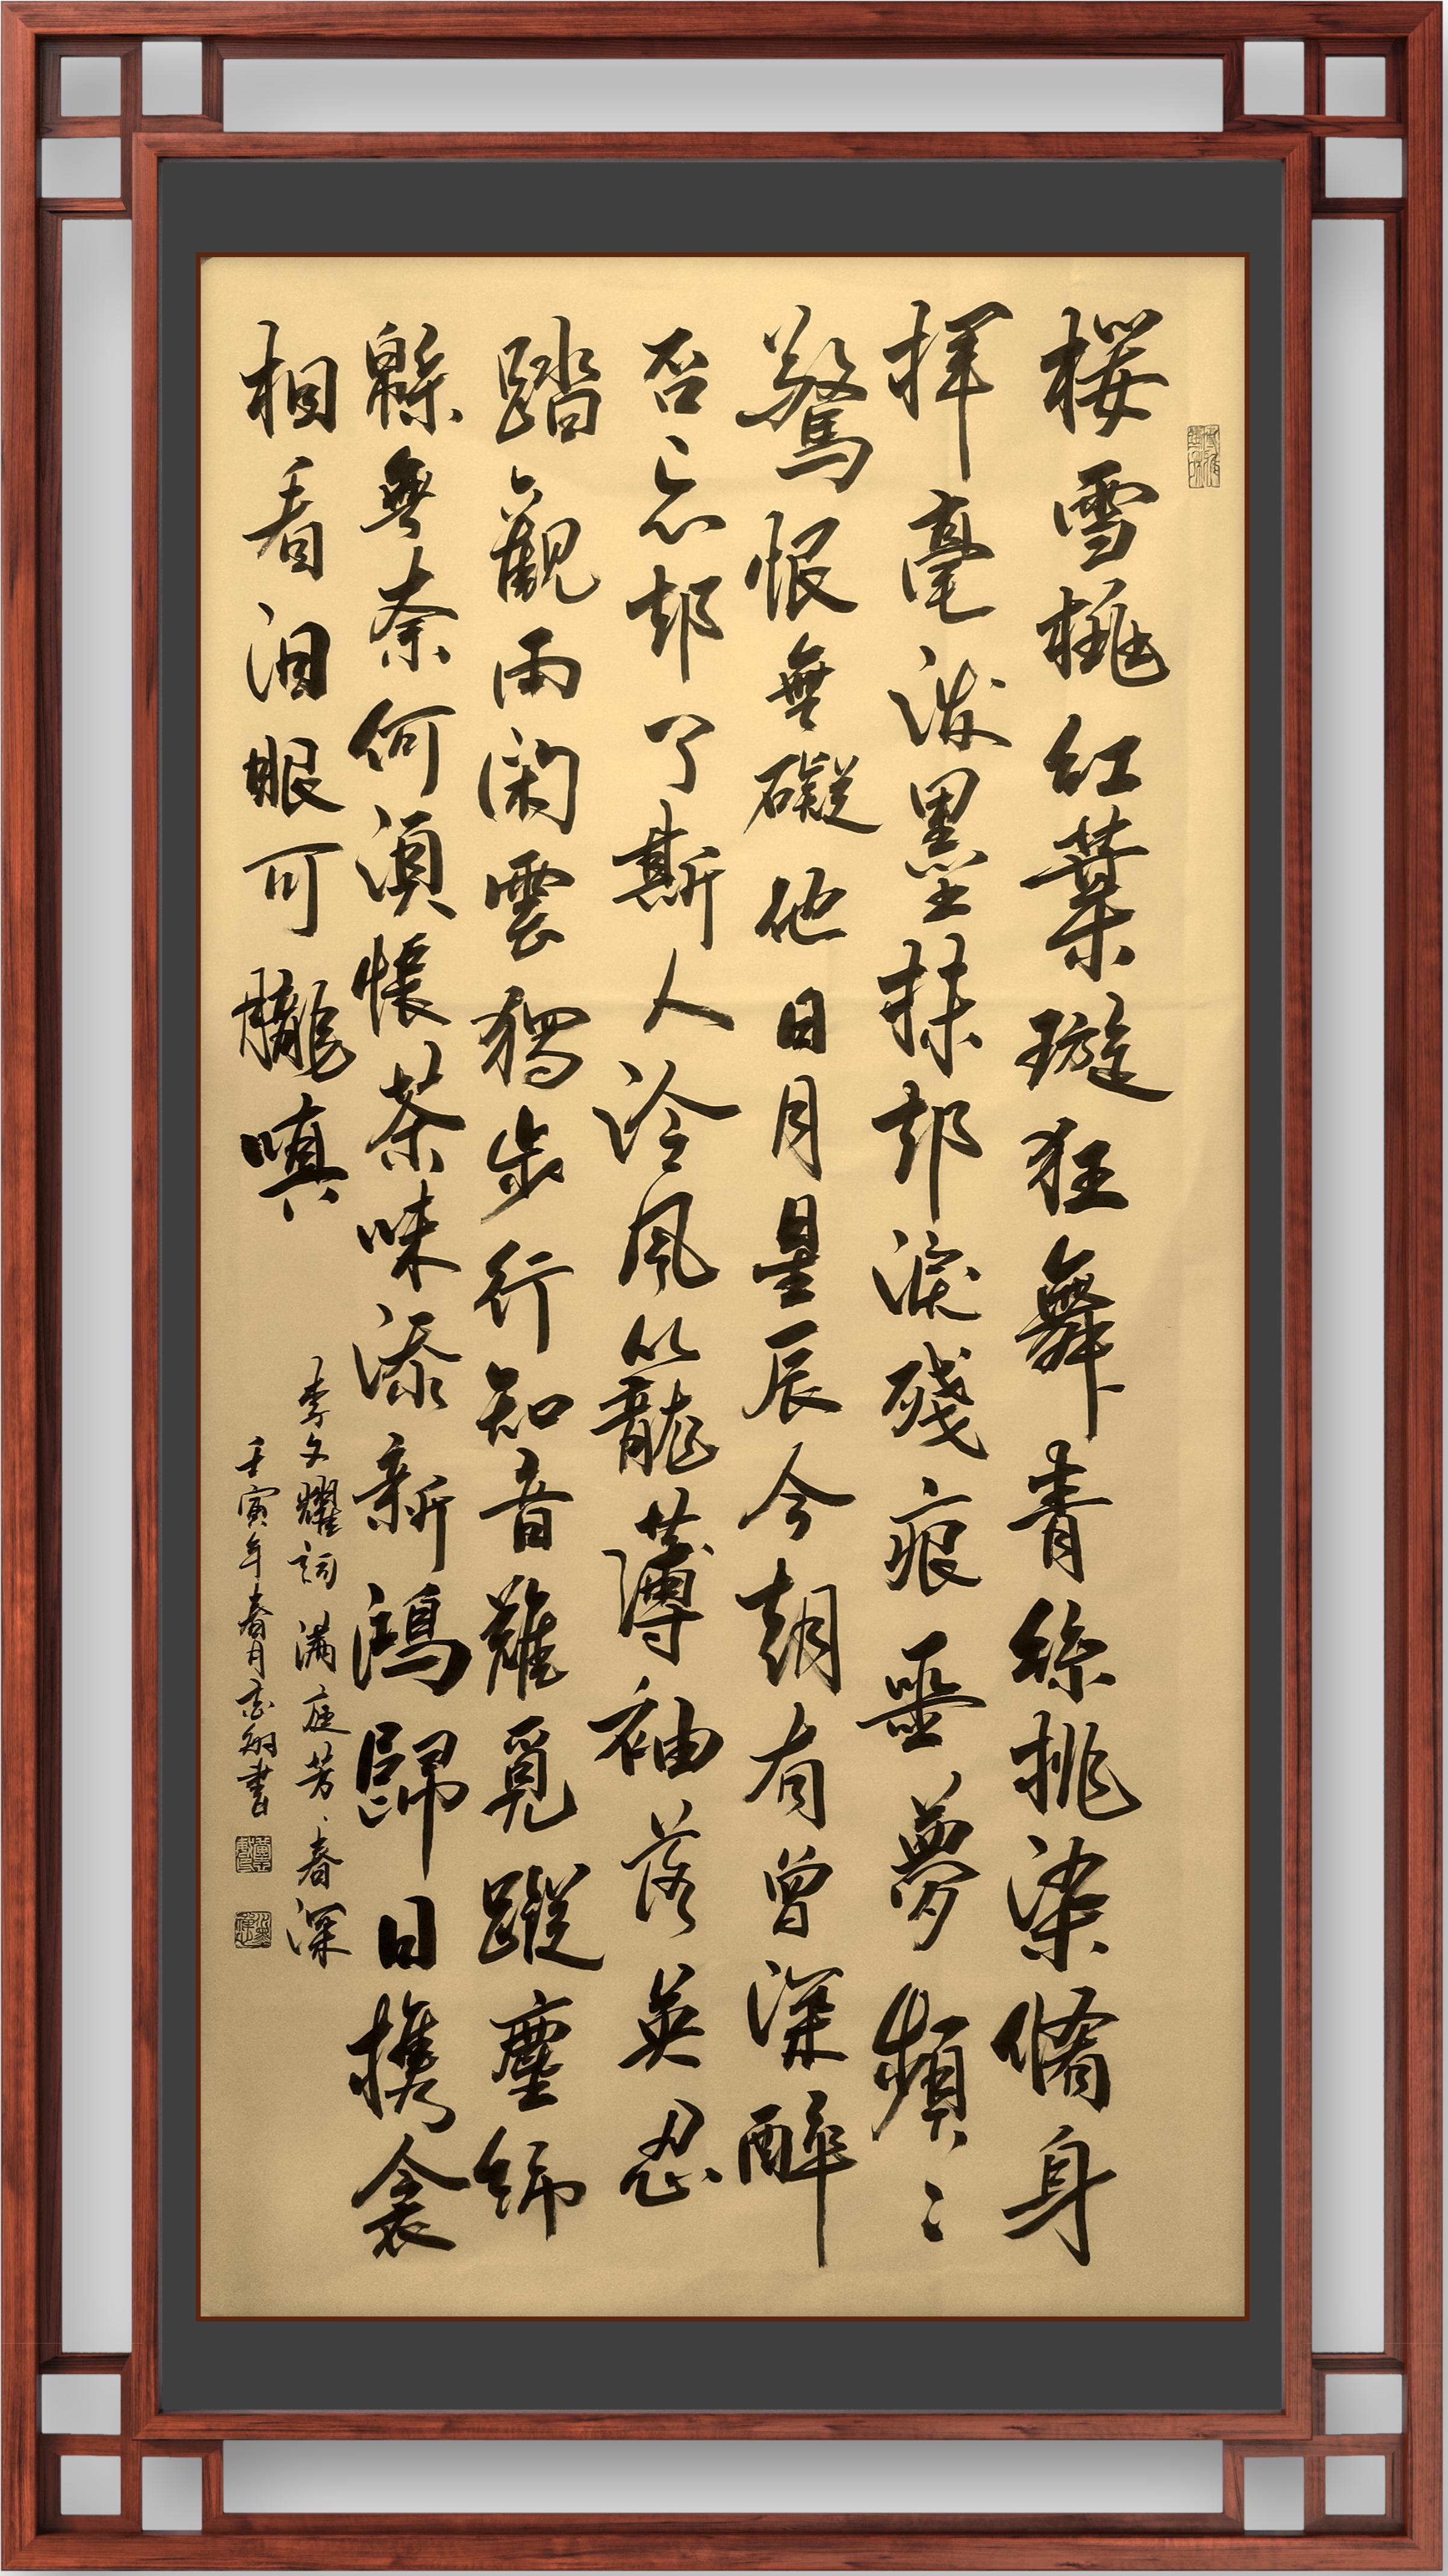 桜雪桃紅葉璇狂舞青絲挑染脩身
揮毫潑墨抹却淚殘痕噩夢頻〻
驚恨無礙他日月星辰今朝有曾深醉
否忘却了斯人泠風籠薄袖落英忍
踏觀雨閑雲獨步行知音難覓蹤塵綈
緜無奈何須悵茶味添新鴻歸日携衾
相看泪眼可朧嗔
李文耀詞滿庭芳、春深
壬寅年春月志翔書